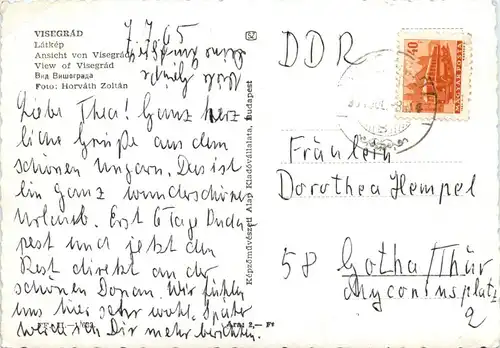 VISEGRÁD
Látkép
Ansicht von Visegrád
View of Visegrád
Вид Вишеграда
Foto: Horváth Zoltán
7.7.65
Liebe Thea! Ganz herz
liche Grüße aus dem
schönen Ungarn. Das ist
ein ganz wunderschöner
Urlaub. Erst 6 Tag Buda
pest und jetzt den
Rest direkt an der
schönen Donau. Wir fühlen
uns hier sehr wohl. Später
werde ich Dir mehr berichten.
Képzőművészeti Alap Kiadóvállalata, Budapest
Ára: 2,— Ft
40
MAGYAR POSTA
DDR
Fräulein
Dorothea Hempel
58 Gotha/Thür
Myconiusplatz
2